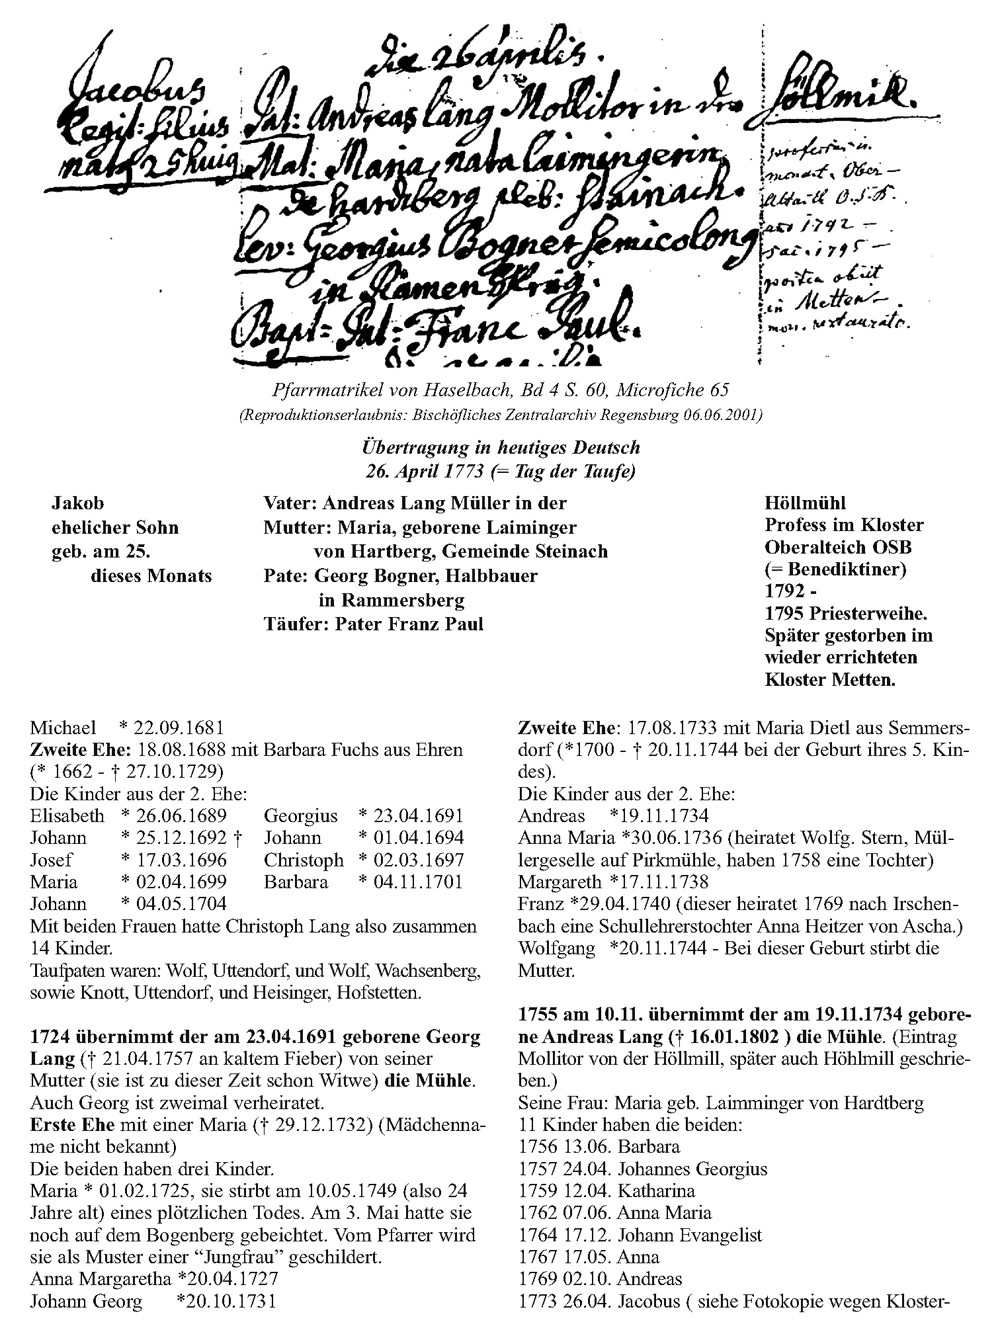 die 26 aprilis.
Jacobus
Legit: filius
nat9 25 huig
Pat: Andreas Lang Mollitor in der Höllmill.
Mat: Maria, nata Laimingerin
de hardtberg pleb: Stainach.
Lev: Georgius Bogner semicolong
in Ramersperg.
Bapt= Pat= Franc Paul.
professus in
monast. Ober-
Altaich O.S.B.
1792 -
1795 -
postea obiit
in Metten
mon. restaurato.
Pfarrmatrikel von Haselbach, Bd 4 S. 60, Microfiche 65
(Reproduktionserlaubnis: Bischöfliches Zentralarchiv Regensburg 06.06.2001)
Übertragung in heutiges Deutsch
26. April 1773 (= Tag der Taufe)
Jakob
ehelicher Sohn
geb. am 25.
dieses Monats
Vater: Andreas Lang Müller in der
Mutter: Maria, geborene Laiminger
von Hartberg, Gemeinde Steinach
Pate: Georg Bogner, Halbbauer
in Rammersberg
Täufer: Pater Franz Paul
Höllmühl
Profess im Kloster
Oberalteich OSB
(= Benediktiner)
1792 -
1795 Priesterweihe.
Später gestorben im
wieder errichteten
Kloster Metten.
Michael * 22.09.1681
Zweite Ehe: 18.08.1688 mit Barbara Fuchs aus Ehren
(* 1662 - † 27.10.1729)
Die Kinder aus der 2. Ehe:
Elisabeth * 26.06.1689 Georgius * 23.04.1691
Johann * 25.12.1692 † Johann * 01.04.1694
Josef * 17.03.1696 Christoph * 02.03.1697
Maria * 02.04.1699 Barbara * 04.11.1701
Johann * 04.05.1704
Mit beiden Frauen hatte Christoph Lang also zusammen
14 Kinder.
Taufpaten waren: Wolf, Uttendorf, und Wolf, Wachsenberg,
sowie Knott, Uttendorf, und Heisinger, Hofstetten.
1724 übernimmt der am 23.04.1691 geborene Georg
Lang († 21.04.1757 an kaltem Fieber) von seiner
Mutter (sie ist zu dieser Zeit schon Witwe) die Mühle.
Auch Georg ist zweimal verheiratet.
Erste Ehe mit einer Maria († 29.12.1732) (Mädchenna-
me nicht bekannt)
Die beiden haben drei Kinder.
Maria * 01.02.1725, sie stirbt am 10.05.1749 (also 24
Jahre alt) eines plötzlichen Todes. Am 3. Mai hatte sie
noch auf dem Bogenberg gebeichtet. Vom Pfarrer wird
sie als Muster einer “Jungfrau” geschildert.
Anna Margaretha *20.04.1727
Johann Georg *20.10.1731
Zweite Ehe: 17.08.1733 mit Maria Dietl aus Semmers-
dorf (*1700 - † 20.11.1744 bei der Geburt ihres 5. Kin-
des).
Die Kinder aus der 2. Ehe:
Andreas *19.11.1734
Anna Maria *30.06.1736 (heiratet Wolfg. Stern, Mül-
lergeselle auf Pirkmühle, haben 1758 eine Tochter)
Margareth *17.11.1738
Franz *29.04.1740 (dieser heiratet 1769 nach Irschen-
bach eine Schullehrerstochter Anna Heitzer von Ascha.)
Wolfgang *20.11.1744 - Bei dieser Geburt stirbt die
Mutter.
1755 am 10.11. übernimmt der am 19.11.1734 gebore-
ne Andreas Lang († 16.01.1802 ) die Mühle. (Eintrag
Mollitor von der Höllmill, später auch Höhlmill geschrie-
ben.)
Seine Frau: Maria geb. Laimminger von Hardtberg
11 Kinder haben die beiden:
1756 13.06. Barbara
1757 24.04. Johannes Georgius
1759 12.04. Katharina
1762 07.06. Anna Maria
1764 17.12. Johann Evangelist
1767 17.05. Anna
1769 02.10. Andreas
1773 26.04. Jacobus ( siehe Fotokopie wegen Kloster-